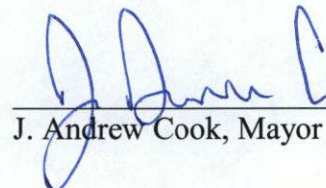 J. Andrew Cook, Mayor